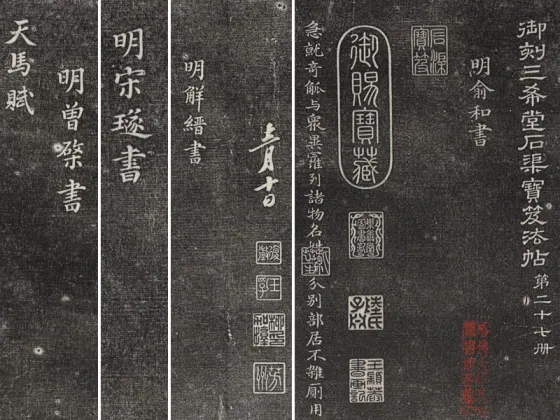 御刻三希堂石渠寶笈法帖 第二十七册
明俞和書
石渠寶笈
御賜寶藏
急就奇觚与衆異羅列諸物名姓字分别部居不雜廁用
明解縉書
明宋璲書
明曾棨書
天馬賦